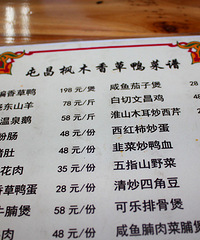 屯昌枫木香草鸭菜谱
香草鸭 198 元/煲
东山羊 78 元/斤
温泉鹅 58 元/斤
粉肠 48 元/份
猪肚 48 元/份
花肉 35 元/份
香草鸭蛋 28 元/份
牛腩煲 58 元/份
肉 48 元/份
咸鱼茄子煲 28
白切文昌鸡 48
淮山木耳炒西芹
西红柿炒蛋
韭菜炒鸭血
五指山野菜
清炒四角豆
可乐排骨煲
咸鱼腩肉菜脯